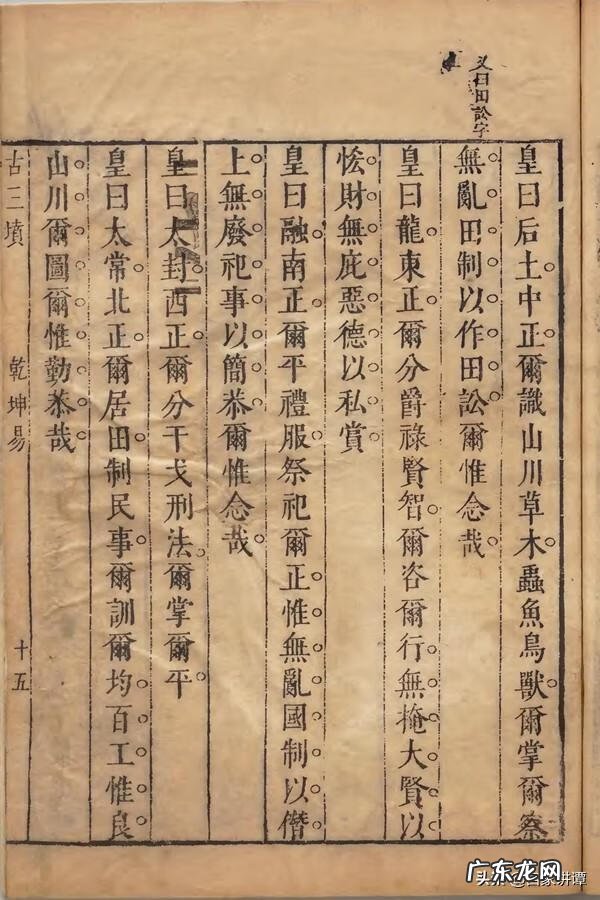 又曰田訟字
皇曰后土中正爾識山川草木蟲魚鳥獸爾掌爾察
無亂田制以作田訟爾惟念哉
皇曰龍東正爾分爵祿賢智爾咨爾行無掩大賢以
恡財無庇惡德以私賞
皇曰融南正爾平禮服祭祀爾正惟無亂國制以僭
上無廢祀事以簡恭爾惟念哉
皇曰太封西正爾分干戈刑法爾掌爾平
皇曰太常北正爾居田制民事爾訓爾均百工惟良
山川爾圖爾惟勤恭哉
古三墳 乾坤易 十五
广东龙网
头条@百家讲谭